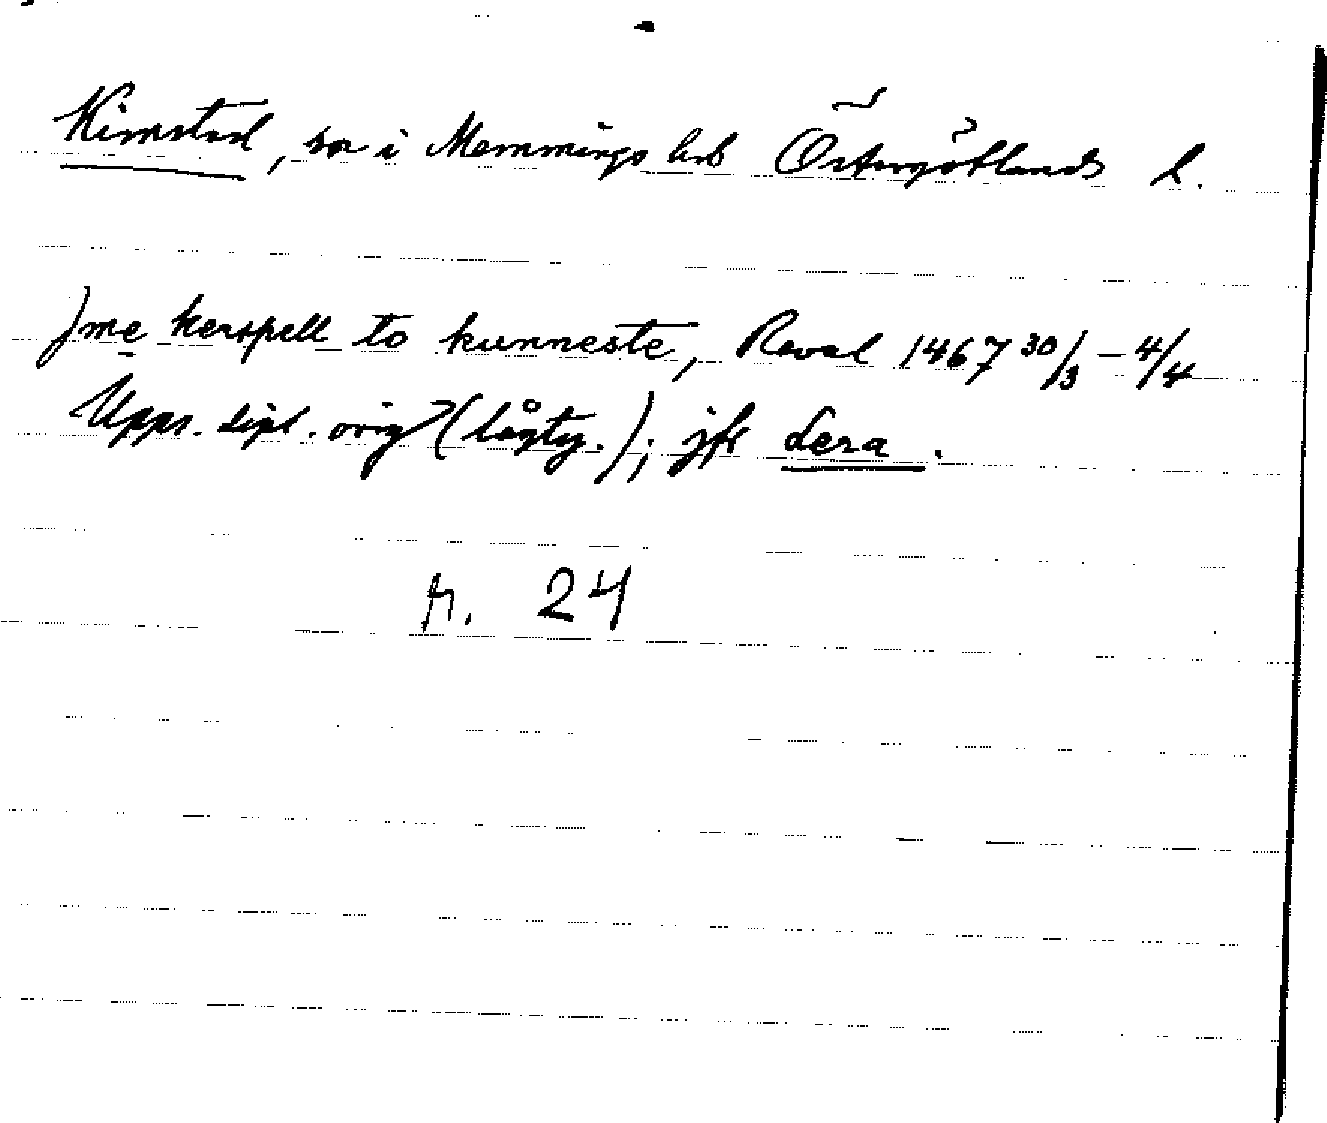 Kimstad, sn i Memmings hd Östergötlands l.
Jme kerspell to kunneste, Reval 1467 30/3 – 4/4
Upps. dipl. orig (lågty.); jfr Lena.
n. 24